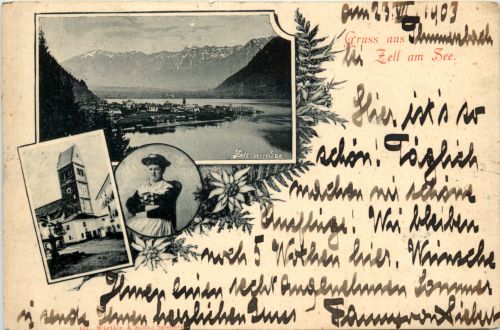 am 23. VI. 1903
Gruss aus Thumersbach
bei Zell am See.
Zell am See
Hier ist's so
schön! Täglich
machen wir schöne
Ausflüge! Wir bleiben
noch 5 Wochen hier. Wünsche
Ihnen einen recht angenehmen Sommer
u sende Ihnen herzlichen Gruss